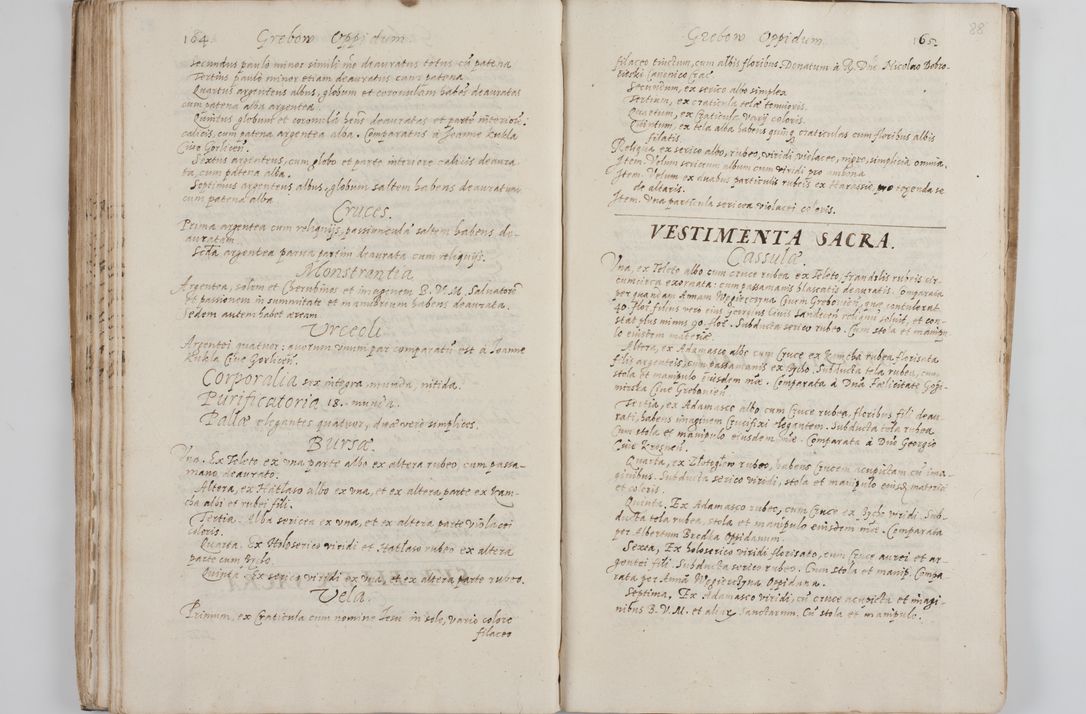 164. Grebow Oppidum
secundus paulo minor simili mo deauratus totus cũ patena
Tertius paulo minor etiam deauratus cum patena.
Quartus argenteus albus, globum et coronulam habēs deauratas
cum patena alba argentea.
Quintus globum et coronulā hēns deauratas et partē interiorē
calicis, cum patena argentea alba. Comparatus à Joanne Kukla
Cive Gorlicen̄.
Sextus argenteus, cum globo et parte interiore calicis deaura-
ta, cum patena alba.
Septimus argenteus albus, globum saltem habens deauratum
cum patena alba
Cruces.
Prima argentea cum reliquijs, passiunculā saltem habens de-
auratam.
Scda argentea parva partim deaurata cum reliquijs.
Monstrantia
Argentea, solem et Cherubinos et imaginem B. V. M. Salvatorē
et passionem in summitate et manubrium habens deaurata.
Sedem autem habet æream.
Urceoli
Argentei quatuor: quorum unum par comparatū est à Joanne
Kukla Cive Gorlicen̄.
Corporalia sex integra munda, nitida.
Purificatoria 18. munda.
Pallæ elegantes quatuor, duæ vero simplices.
Bursæ
Una. Ex Teleto ex una parte alba ex altera rubeo, cum passa-
mano deaurato.
Altera, ex Hatlaso albo ex una, et ex altera parte ex Kam-
cha albi et rubei fili.
Tertia. Alba sericea ex una, et ex altera parte violacei
coloris.
Quarta. Ex Holoserico viridi et Hatlaso rubeo ex altera
parte cum
Quinta ex serico viridi ex una, et ex altera parte rubeo.
Vela.
Primum, ex Craticula cum nomine Jesu in sole, vario colore
filaceo
Grebow Oppidum 165.
88
filaceo tinctum, cum albis floribus. Donatum à R. Dn̄o Nicolao Dobro-
cieski Canonico Crac.
Secundum, ex serico albo simplex
Tertium, ex craticula telæ tenuioris.
Quartum, ex Craticula varij coloris.
Quintum, ex tela alba habens quinq craticulas cum floribus albis
filatis.
Reliqua ex serico albo, rubeo, viridi violaceo, nigro, simplicia omnia.
Item. Velum sericeum album cum viridi pro ambona
Item. Velum ex duabus particulis rubeis ex Harassio, pro tegenda se-
de altaris.
Item. Una particula sericea violacei coloris.
VESTIMENTA SACRA.
Cassulæ
Una, ex Teleto albo cum cruce rubea ex Teleto, frandzlis rubeis cir-
cumcirca exornata: cum passamanis deauratis. Comparata
per quandam Annam Węgierczyna Civem Grebovien̄, quæ contulerat
40. flor. filius vero eius Georgius Civis Sandecen̄ reliquū soluit, et con-
stat plus minus 90. flor. Subducta serico rubeo. Cum stola et manipu-
lo eiusdem materiæ.
Altera, ex Adamasco albo cum Cruce ex Kamcha rubea florisata
filis argenteis, cum passamanis ex Bysso. Subducta tela rubea, cum
stola et manipulo eiusdem mæ. Comparata à Dn̄a Fœlicitate
Cive Grebovien̄.
Tertia, ex Adamasco albo cum Cruce rubea, floribus fili deau-
rati, habens imaginem Crucifixi elegantem. Subducta tela rubea
Cum stola et manipulo eiusdem mæ. Comparata à Dn̄o Georgio
Cive Krosnen̄.
Quarta, ex Złotogłow rubeo, habens Crucem acupictam cū ima-
ginibus. Subducta serico viridi, stola et manipulo eiusd. materiæ
et coloris.
Quinta. Ex Adamasco rubeo, cum Cruce ex Bysso viridi. Sub-
ducta tela rubea, stola et manipulo eiusdem mæ. Comparata
per Albertum Oppidanum.
Sexta, Ex holoserico viridi florisato, cum Cruce aurei et ar-
gentei fili. Subducta serico rubeo. Cum stola et manip. Compa-
rata per Annā Węgierczyna Oppidana.
Septima, Ex Adamasco viridi, cū cruce acupicta et imagi-
nibus B. V. M. et aliar. Sanctarum. Cū stola et manipulo.